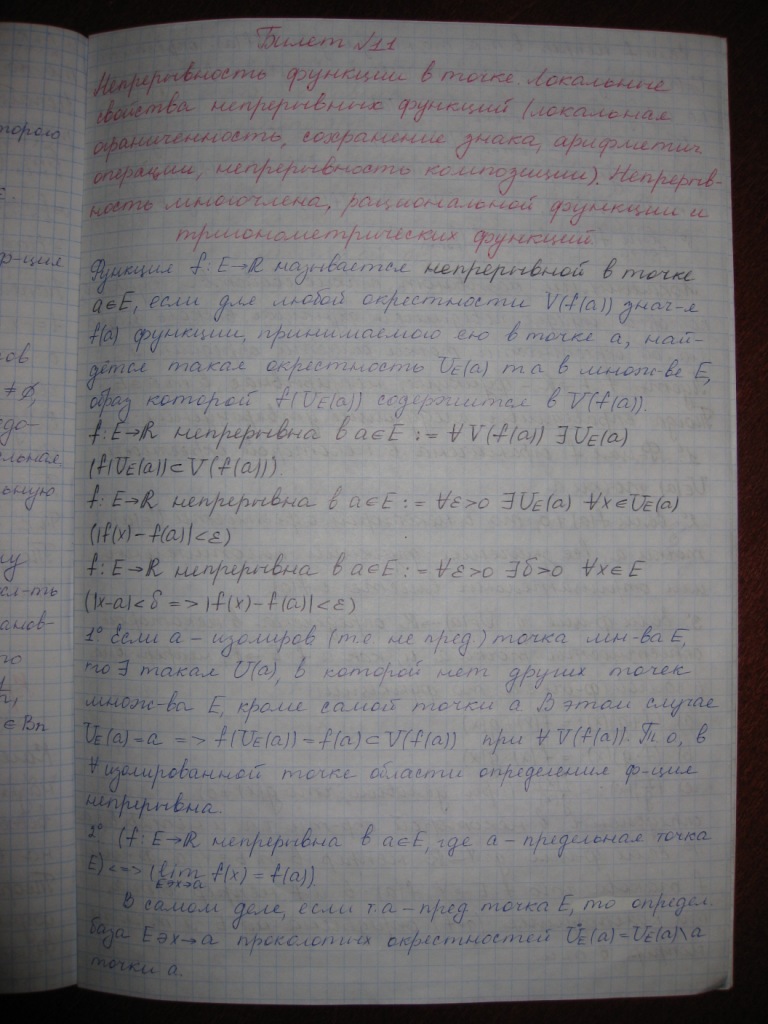 Билет №11
Непрерывность функции в точке. Локальные
свойства непрерывных функций (локальная
ограниченность, сохранение знака, арифметич
операции, непрерывность композиции). Непрерыв-
ность многочлена, рациональной функции и
тригонометрических функций.
Функция f: E→R называется непрерывной в точке
a∈E, если для любой окрестности V(f(a)) знач-я
f(a) функции, принимаемого ею в точке a, най-
дётся такая окрестность U_E(a) т.a в множ-ве E,
образ которой f(U_E(a)) содержится в V(f(a)).
f: E→R непрерывна в a∈E := ∀ V(f(a)) ∃ U_E(a)
(f(U_E(a)) ⊂ V(f(a))).
f: E→R непрерывна в a∈E := ∀ε>0 ∃ U_E(a) ∀x∈U_E(a)
(|f(x)-f(a)|<ε)
f: E→R непрерывна в a∈E := ∀ε>0 ∃δ>0 ∀x∈E
(|x-a|<δ => |f(x)-f(a)|<ε)
1° Если a - изолиров (т.е. не пред) точка мн-ва E,
то ∃ такая U(a), в которой нет других точек
множ-ва E, кроме самой точки a В этом случае
U_E(a)=a => f(U_E(a))=f(a)⊂V(f(a)) при ∀ V(f(a)). Т о, в
∀ изолированной точке области определения ф-ция
непрерывна.
2° (f: E→R непрерывна в a∈E, где a - предельная точка
E) <=> (lim f(x) = f(a))
E∋x→a
В самом деле, если т.a - пред точка E, то определ.
база E∋x→a проколотых окрестностей Ů_E(a)=U_E(a)\a
точки a.
торого
ф-ция
ов
≠∅,
едо-
льная
ьную
анов-
∈ Bn